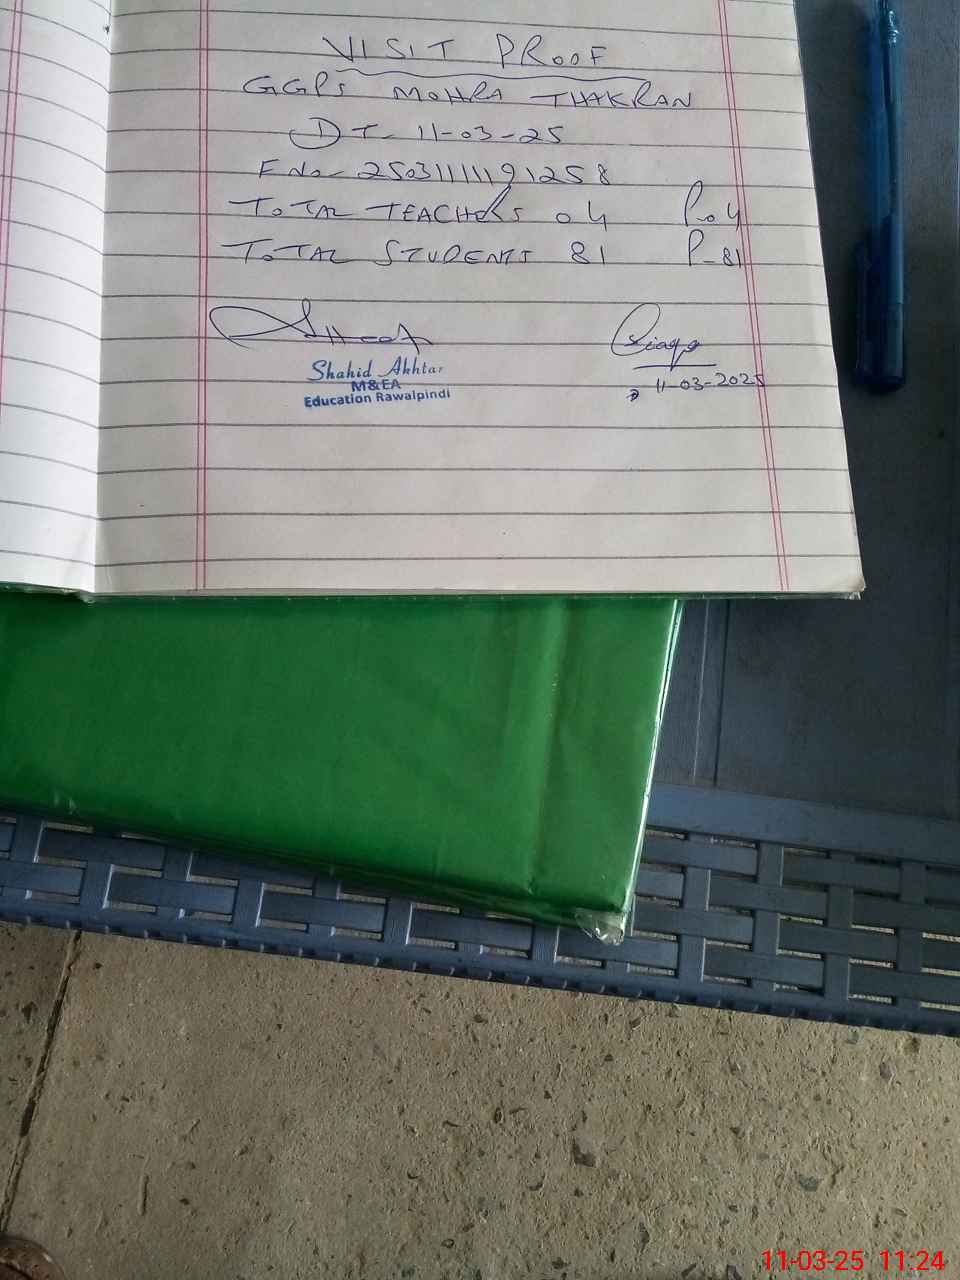 VISIT PROOF
GGPS MOHRA THAKRAN
DT- 11-03-25
F No- 2503111191258
TOTAL TEACHERS 04 P-04
TOTAL STUDENTS 81 P-81
Shahid Akhtar
M&EA
Education Rawalpindi
11-03-2025
11-03-25 11:24